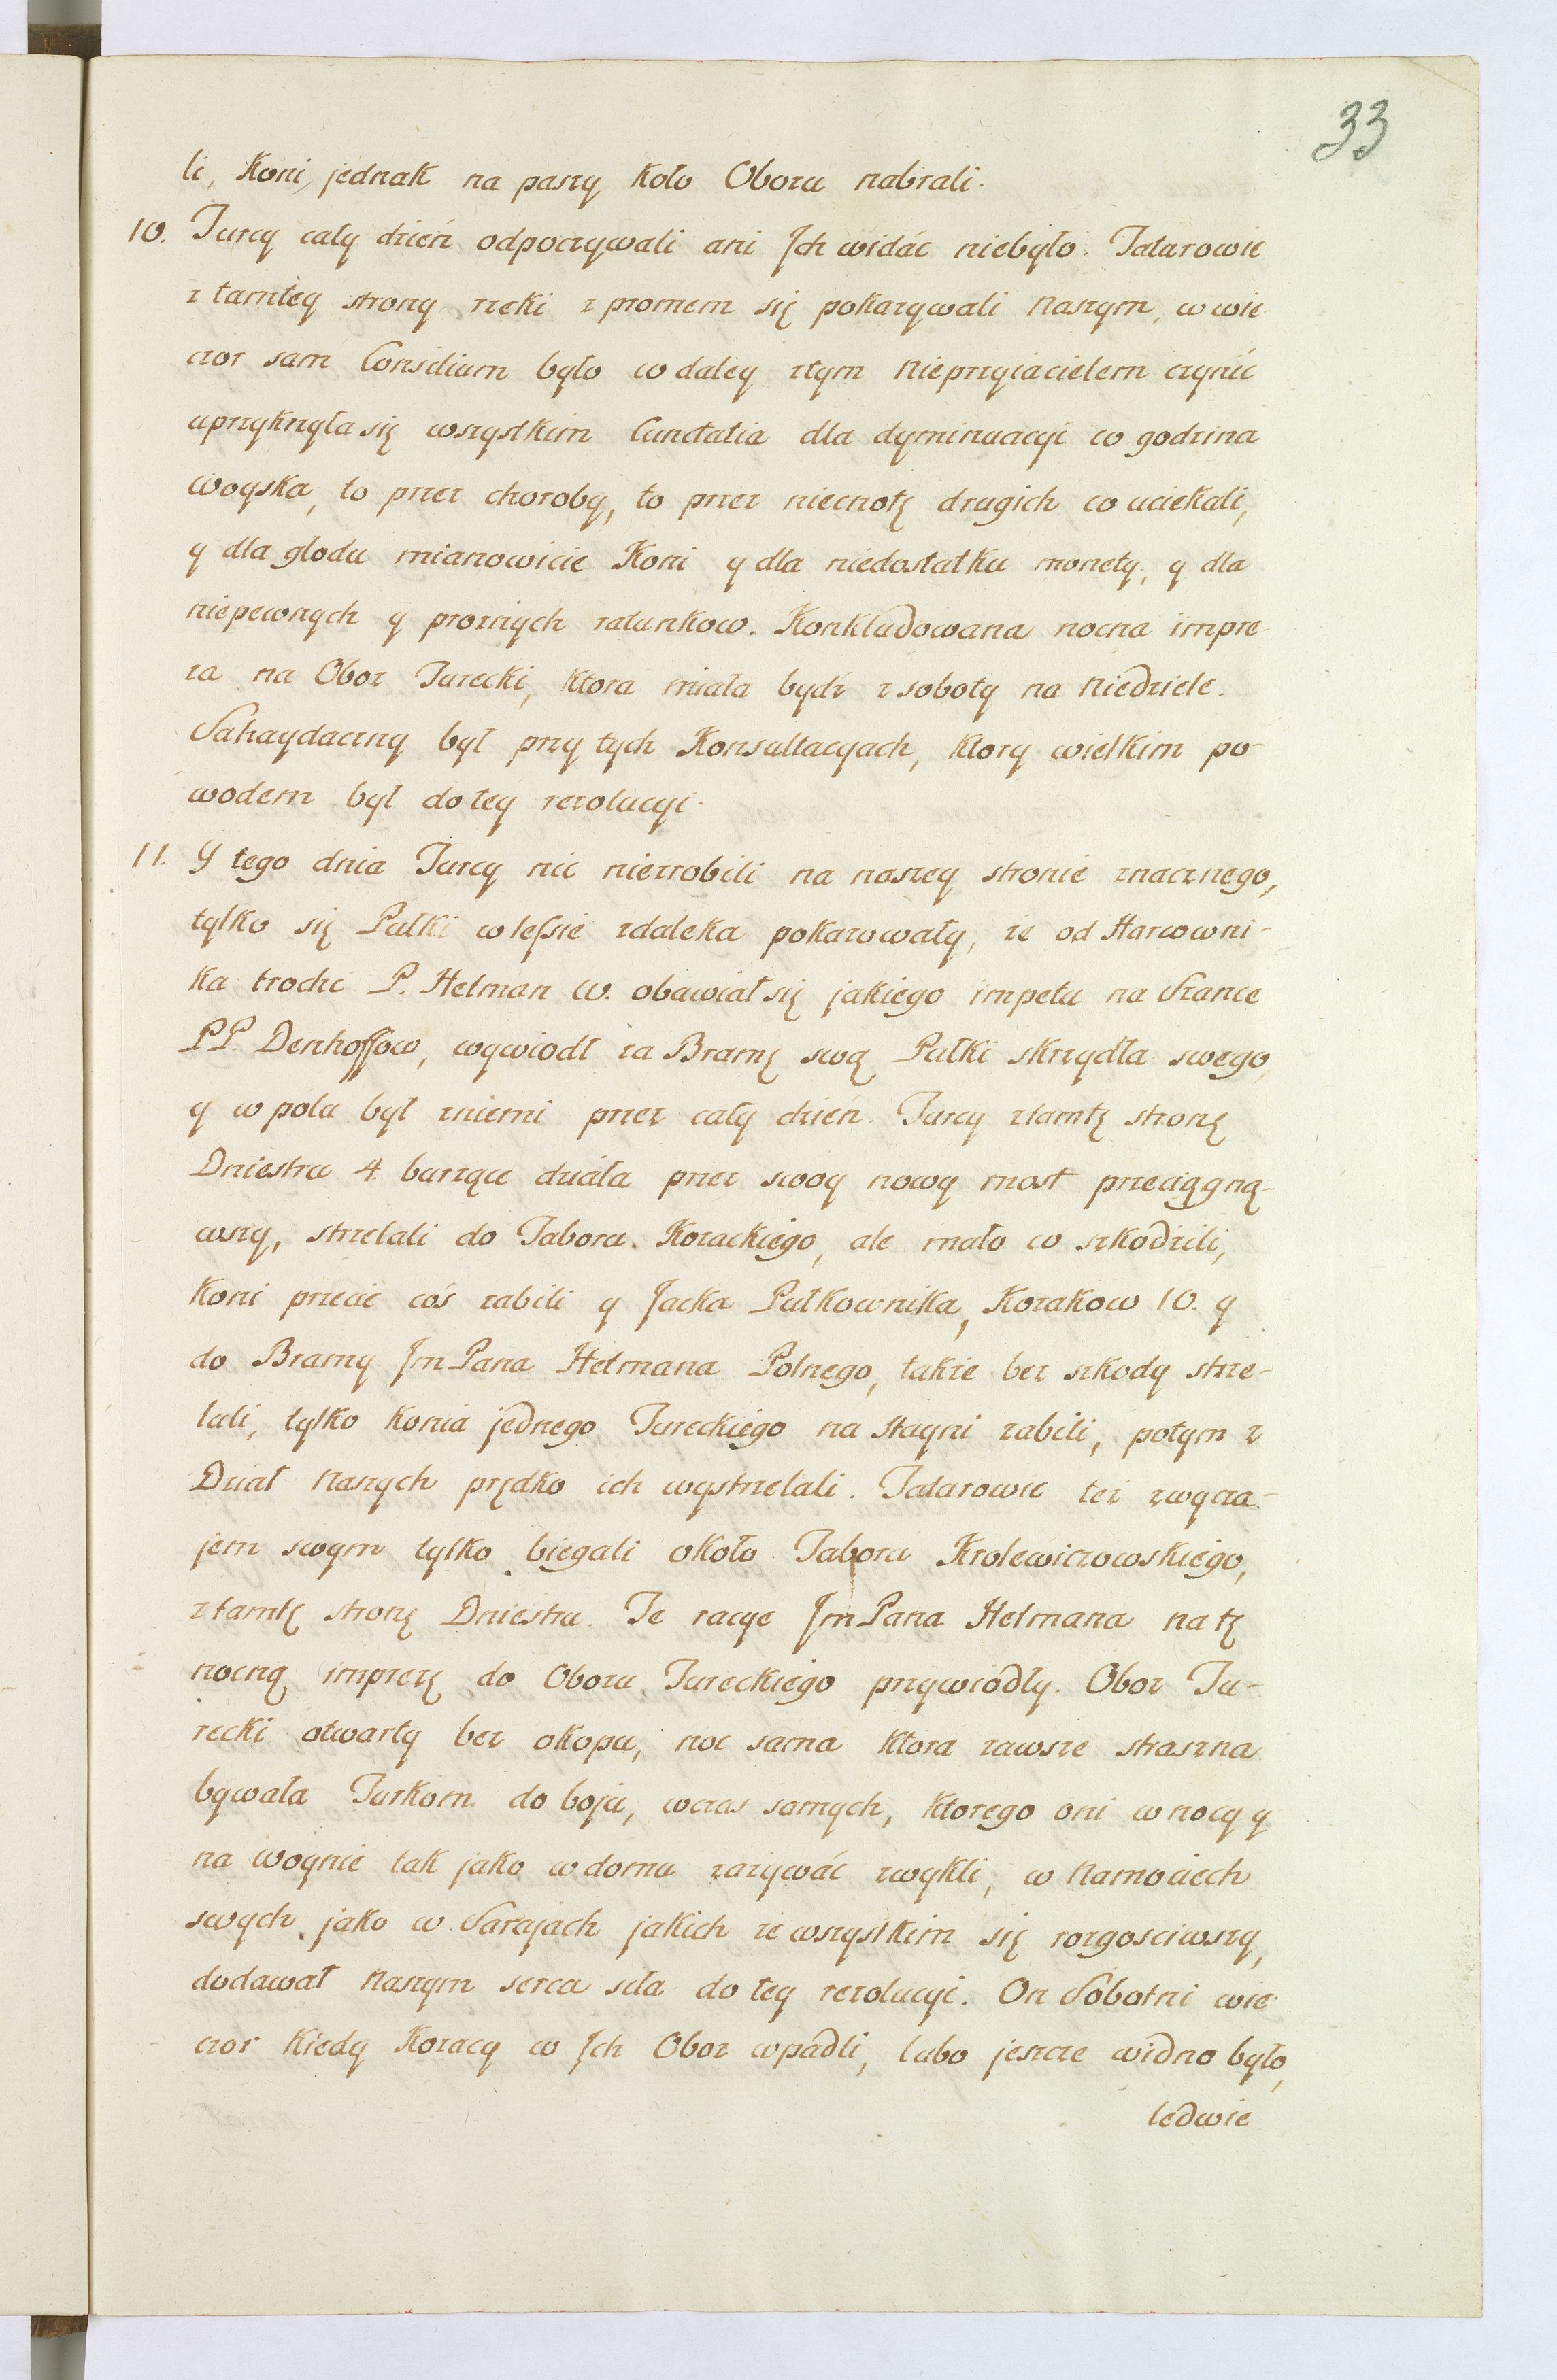 33
li, Koni, jednak na paszy koło Obozu nabrali.
10. Turcy cały dzień odpoczywali ani Ich widác niebyło. Tatarowie
z tamtey strony rzeki z promem się pokazywali Naszym, w wie-
czor sam Consilium było co daley ztym Nieprzyiacielem czynić
uprzykrzyła się wszystkim Cunctatia dla dyminuacyi co godzina
woyska, to przez choroby, to przez niecnotę drugich co uciekali,
y dla głodu mianowicie Koni y dla niedostatku monety, y dla
niepewnych y prożnych ratunkow. Konkludowana nocna impre-
za na Oboz Turecki, ktora miała bydź z soboty na Niedziele.
Sahaydaczny był przy tych Konsultacyach, ktory wielkim po-
wodem był do tey rezolucyi.
11. Y tego dnia Turcy nic niezrobili na naszey stronie znacznego,
tylko się Pułki w lessie zdaleka pokazowały, że od Harcowni-
ka troche P. Hetman W. obawiał się jakiego impetu na Szance
PP. Denhoffow, wywiodł za Bramę swą Pułki skrzydła swego,
y w polu był zniemi przez cały dzień. Turcy ztamtę stronę
Dniestru 4. burzące działa przez swoy nowy most przeciągną-
wszy, strzelali do Taboru Kozackiego, ale mało co szkodzili,
koni przecie cóś zabili y Jacka Pułkownika, Kozakow 10. y
do Bramy Jm Pana Hetmana Polnego, także bez szkody strze-
lali, tylko konia jednego Tureckiego na stayni zabili, potym z
Dział Naszych prędko ich wystrzelali. Tatarowie też zwycza-
jem swym tylko biegali około Taboru Krolewiczowskiego,
z tamtę stronę Dniestru. Te racye Jm Pana Hetmana na tę
nocną imprezę do Obozu Tureckiego przywiodły. Oboz Tu-
recki otwarty bez okopu, noc sama ktora zawsze straszna
bywała Turkom do boju, wczas samych, ktorego oni w nocy y
na woynie tak jako w domu zażywác zwykli, w Namociech
swych jako w Sarajach jakich ze wszystkim się rozgosciwszy,
dodawał Naszym serca siła do tey rezolucyi. On Sobotni wie-
czor kiedy Kozacy w Ich Oboz wpadli, lubo jeszcze widno było,
ledwie